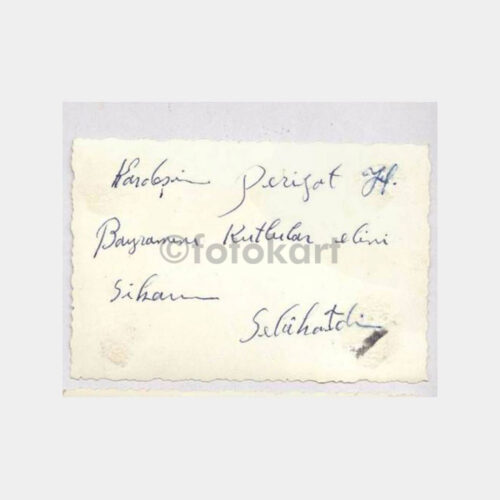 Kardeşim Perizat H.
Bayramını Kutlular elini
©fotokart
Sıkarım
Selâhatdin